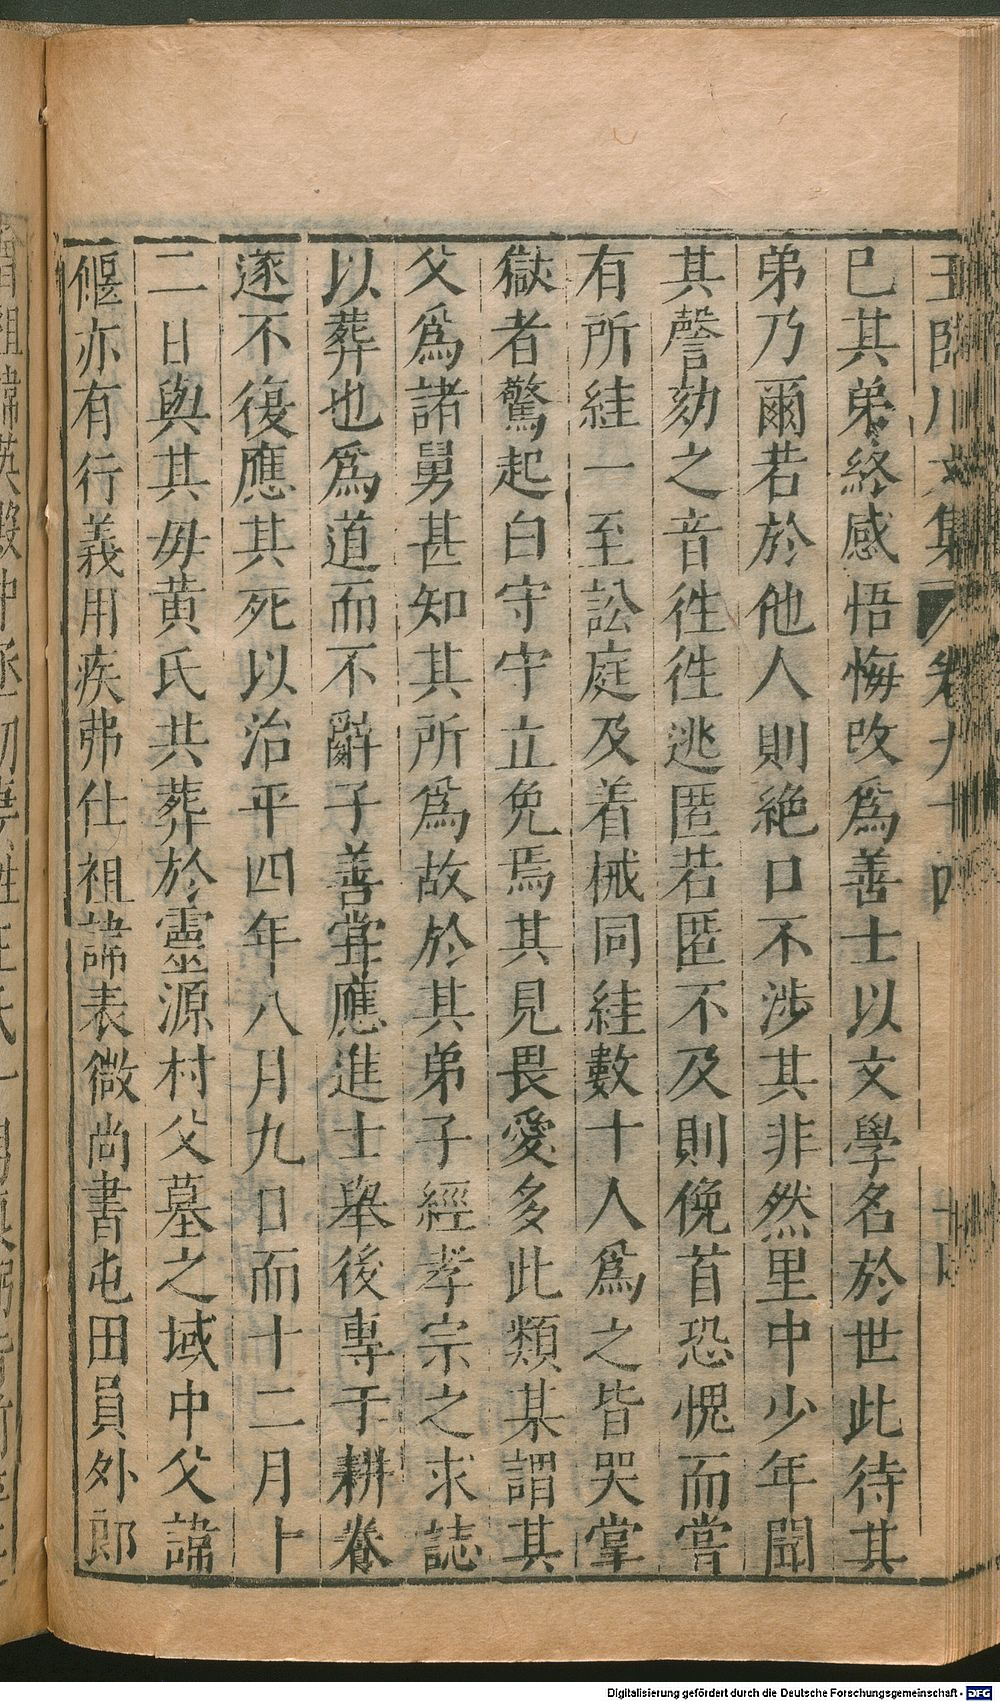 王臨川文集 卷九十四
已其弟終感悟悔改爲善士以文學名於世此待其
弟乃爾若於他人則絶口不涉其非然里中少年聞
其謦劾之音徃徃逃匿若匿不及則俛首恐愧而嘗
有所絓一至訟庭及着械同絓數十人爲之皆哭掌
獄者驚起白守守立免焉其見畏愛多此類某謂其
父爲諸舅甚知其所爲故於其弟子經孝宗之求誌
以葬也爲道而不辭子善甞應進士舉後專于耕養
遂不復應其死以治平四年八月九日而十二月十
二日與其母黄氏共葬於靈源村父墓之域中父諱
偃亦有行義用疾弗仕祖諱表微尚書屯田員外郎
Digitalisierung gefördert durch die Deutsche Forschungsgemeinschaft - DFG